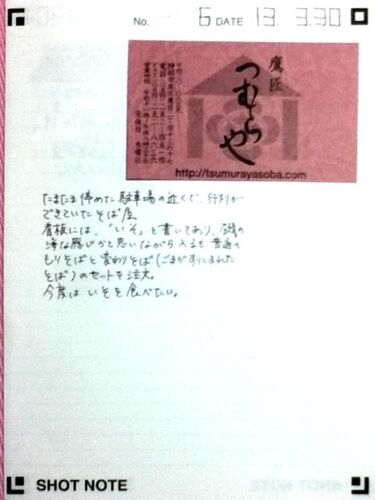 No. 6 DATE 13. 3.30
鷹匠
つむらや
営業時間
定休日 木曜日
http://tsumurayasoba.com
たまたま停めた駐車場の近くで、行列が
できていたそば屋。
看板には、「いそ」と書いてあり、磯の
海な感じかと思いながら入ると、普通の
もりそばと変わりそば(ごまがすりこまれた
そば)のセットを注文。
今度はいそを食べたい。
SHOT NOTE